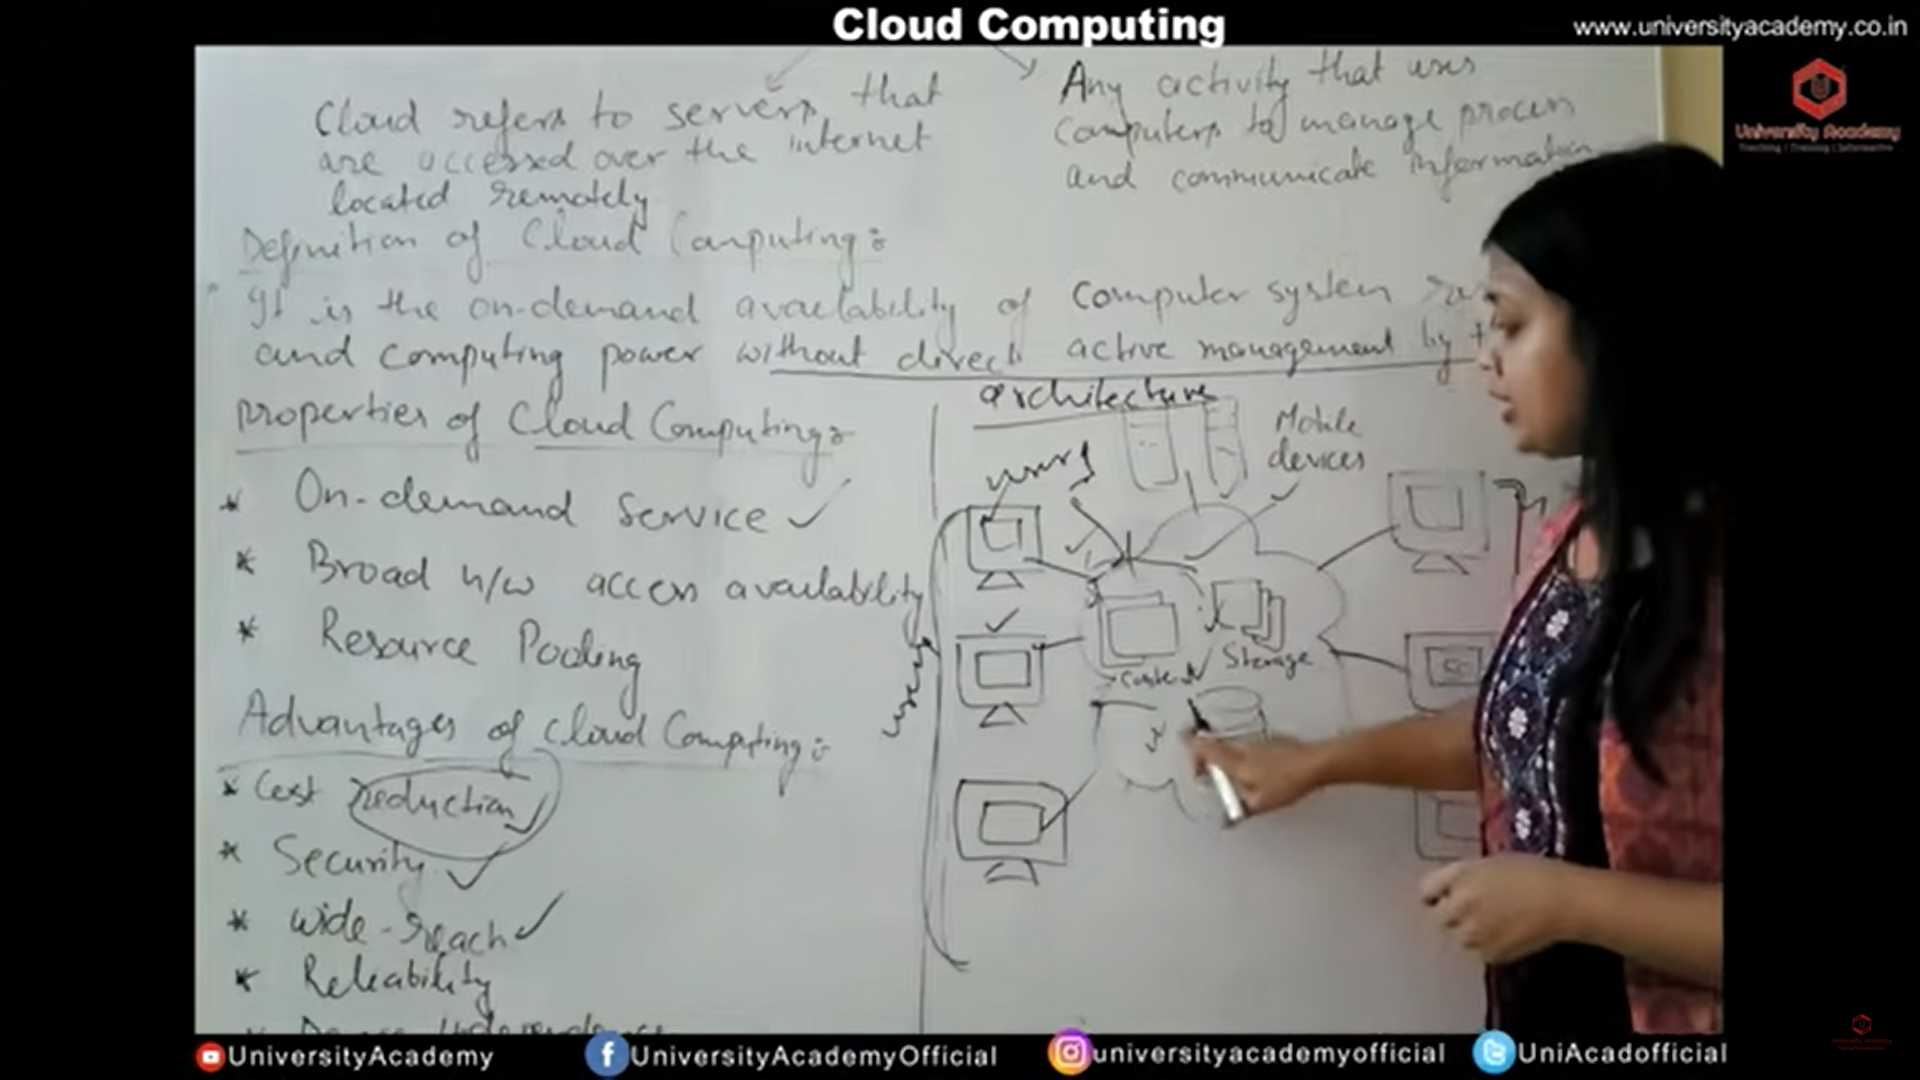 Cloud Computing
www.universityacademy.co.in
University Academy
Cloud refers to servers that
are accessed over the internet
located remotely
Any activity that uses
computers to manage process
and communicate information
Definition of Cloud Computing:
It is the on-demand availability of computer system
and computing power without direct active management by
Properties of Cloud Computing:
* On-demand Service
* Broad n/w access availability
* Resource Pooling
Advantages of Cloud Computing:
* Cost reduction
* Security
* Wide-reach
* Reliability
architecture
users
Mobile
devices
Content
Storage
users
UniversityAcademy
UniversityAcademyOfficial
universityacademyofficial
UniAcadofficial